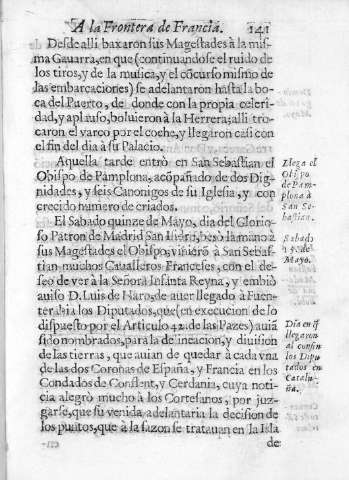 A la Frontera de Francia. 141
Desde alli baxaron sus Magestades à la mis-
ma Gavarra, en que (continuandose el ruido de
los tiros, y de la musica, y el cõcurso mismo de
las embarcaciones) se adelantaron hasta la bo-
ca del Puerto, de donde con la propia celeri-
dad, y aplauso, bolvieron à la Herrera; alli tro-
caron el varco por el coche, y llegaron casi con
el fin del dia à su Palacio.
Aquella tarde entrò en San Sebastian el
Obispo de Pamplona, acõpañado de dos Dig-
nidades, y seis Canonigos de su Iglesia, y con
crecido numero de criados.
Llega el
Obispo
de Pam-
plona à
San Se-
bastian.
El Sabado quinze de Mayo, dia del Glorio-
so Patron de Madrid San Isidro, besò la mano à
sus Magestades el Obispo, vinierõ à San Sebas-
tian muchos Cavalleros Franceses, con el de-
seo de ver à la Señora Infanta Reyna, y embiò
aviso D. Luis de Haro, de aver llegado à Fuen-
terabia los Diputados, que (en execucion de lo
dispuesto por el Articulo 42. de las Pazes) aviã
sido nombrados, para la delineacion, y division
de las tierras, que avian de quedar à cada vna
de las dos Coronas de España, y Francia en los
Condados de Conflent, y Cerdania, cuya noti-
cia alegrò mucho à los Cortesanos, por juz-
garse, que su venida adelantaria la decision de
los puntos, que à la sazon se tratauan en la Isla
de
Sabado
15. de
Mayo.
Dia en q̃
llegaron
al confin
los Dipu
tados en
Catalu-
ña.